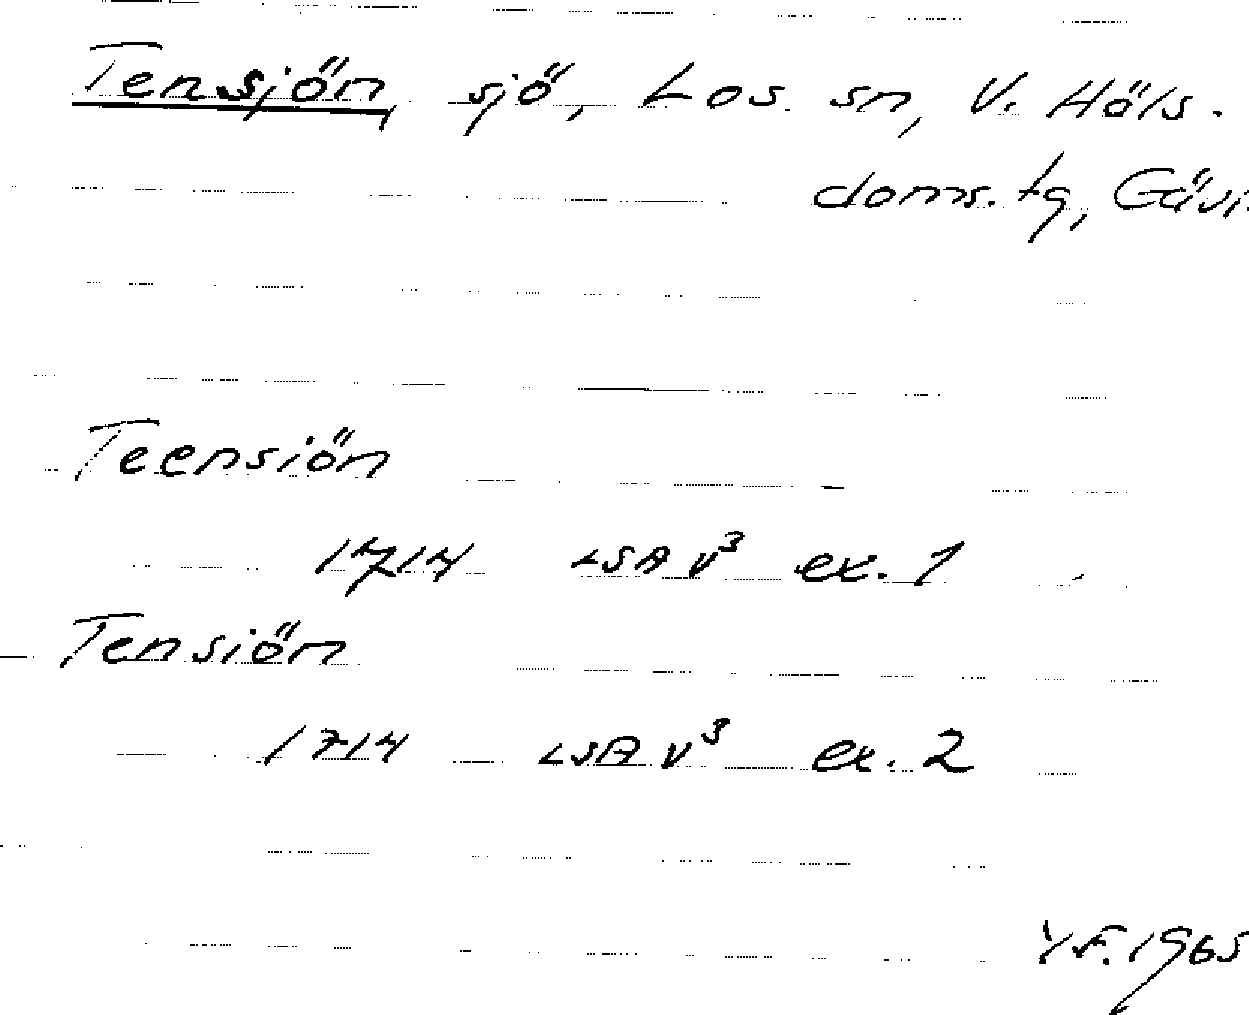 Tensjön, sjö, Los. sn, V. Häls.
doms. tg, Gävl.
Teensiön
1714 LSA V³ ex. 1
Tensiön
1714 LSA V³ ex. 2
Y F. 1965